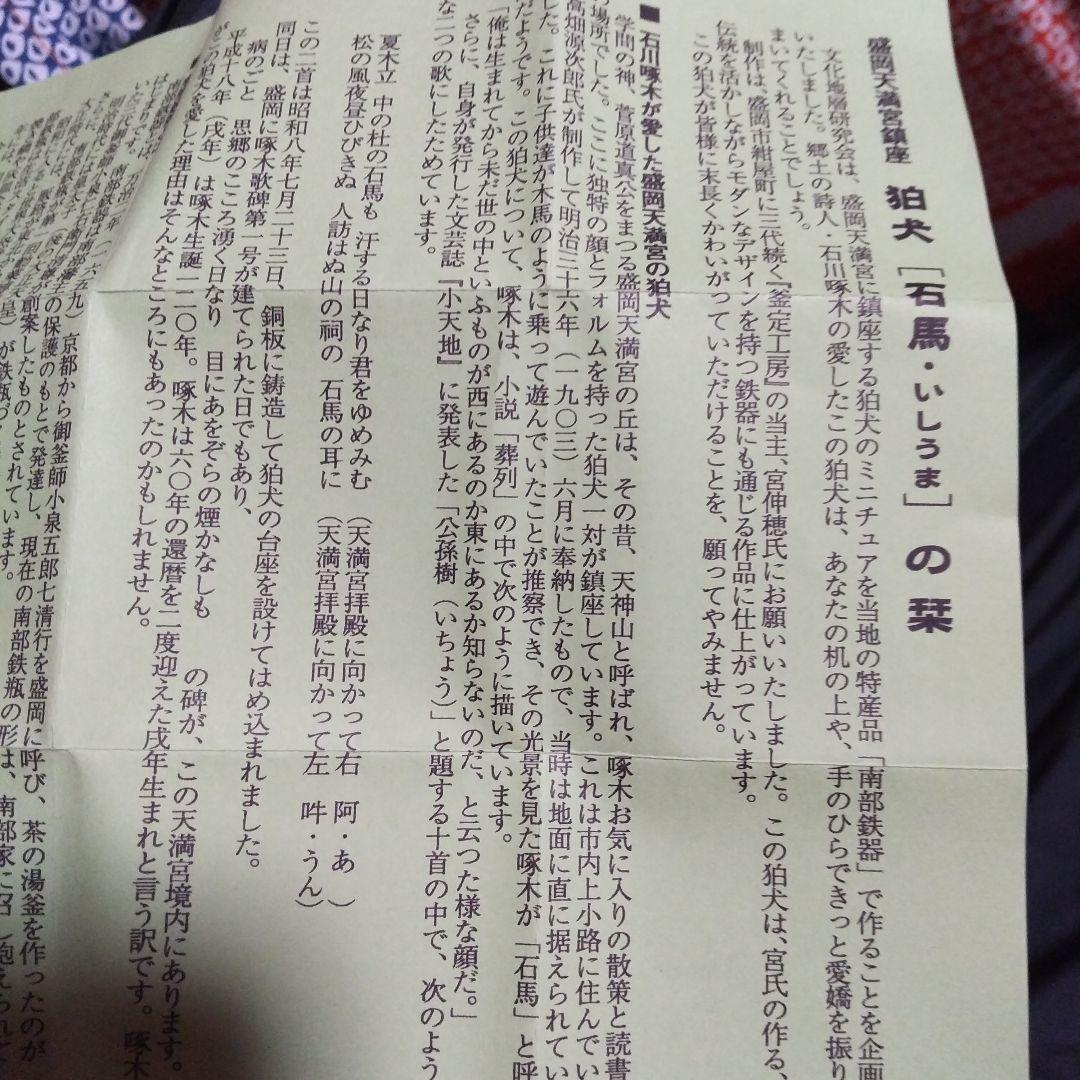 盛岡天満宮鎮座 狛犬[石馬・いしうま]の栞
文化地層研究会は、盛岡天満宮に鎮座する狛犬のミニチュアを当地の特産品「南部鉄器」で作ることを企画
いたしました。郷土の詩人・石川啄木の愛したこの狛犬は、あなたの机の上や、手のひらできっと愛嬌を振り
まいてくれることでしょう。
制作は、盛岡市紺屋町に三代続く『釜定工房』の当主、宮伸穂氏にお願いいたしました。この狛犬は、宮氏の作る、
伝統を活かしながらモダンなデザインを持つ鉄器にも通じる作品に仕上がっています。
この狛犬が皆様に末長くかわいがっていただけることを、願ってやみません。
■石川啄木が愛した盛岡天満宮の狛犬
学問の神、菅原道真公をまつる盛岡天満宮の丘は、その昔、天神山と呼ばれ、啄木お気に入りの散策と読書
の場所でした。ここに独特の顔とフォルムを持った狛犬一対が鎮座しています。これは市内上小路に住んでい
高畑源次郎氏が制作して明治三十六年(一九〇三)六月に奉納したもので、当時は地面に直に据えられてい
した。これに子供達が木馬のように乗って遊んでいたことが推察でき、その光景を見た啄木が「石馬」と呼
だようです。この狛犬について、啄木は、小説「葬列」の中で次のように描いています。
「俺は生まれてから未だ世の中といふものが西にあるのか東にあるか知らないのだ、と云つた様な顔だ。」
さらに、自身が発行した文芸誌『小天地』に発表した「公孫樹(いちょう)」と題する十首の中で、次のよう
な二つの歌にしたためています。
夏木立 中の杜の石馬も 汗する日なり君をゆめみむ (天満宮拝殿に向かって右 阿・あ)
松の風夜昼ひびきぬ 人訪はぬ山の祠の 石馬の耳に (天満宮拝殿に向かって左 吽・うん)
この二首は昭和八年七月二十三日、銅板に鋳造して狛犬の台座を設けてはめ込まれました。
同日は、盛岡に啄木歌碑第一号が建てられた日でもあり、
病のごと 思郷のこころ湧く日なり 目にあをぞらの煙かなしも の碑が、この天満宮境内にあります。
平成十八年(戌年)は啄木生誕一二〇年。啄木は六〇年の還暦を二度迎えた戌年生まれと言う訳です。啄木
がこの狛犬を愛した理由はそんなところにもあったのかもしれません。
南部鉄器は、万治二年(一六五九)京都から御釜師小泉五郎七清行を盛岡に呼び、茶の湯釜を作ったのが
はじまりで
の保護のもとで発達し、現在の南部鉄瓶の形は、南部家に召し抱えられて
創案したものとされています。